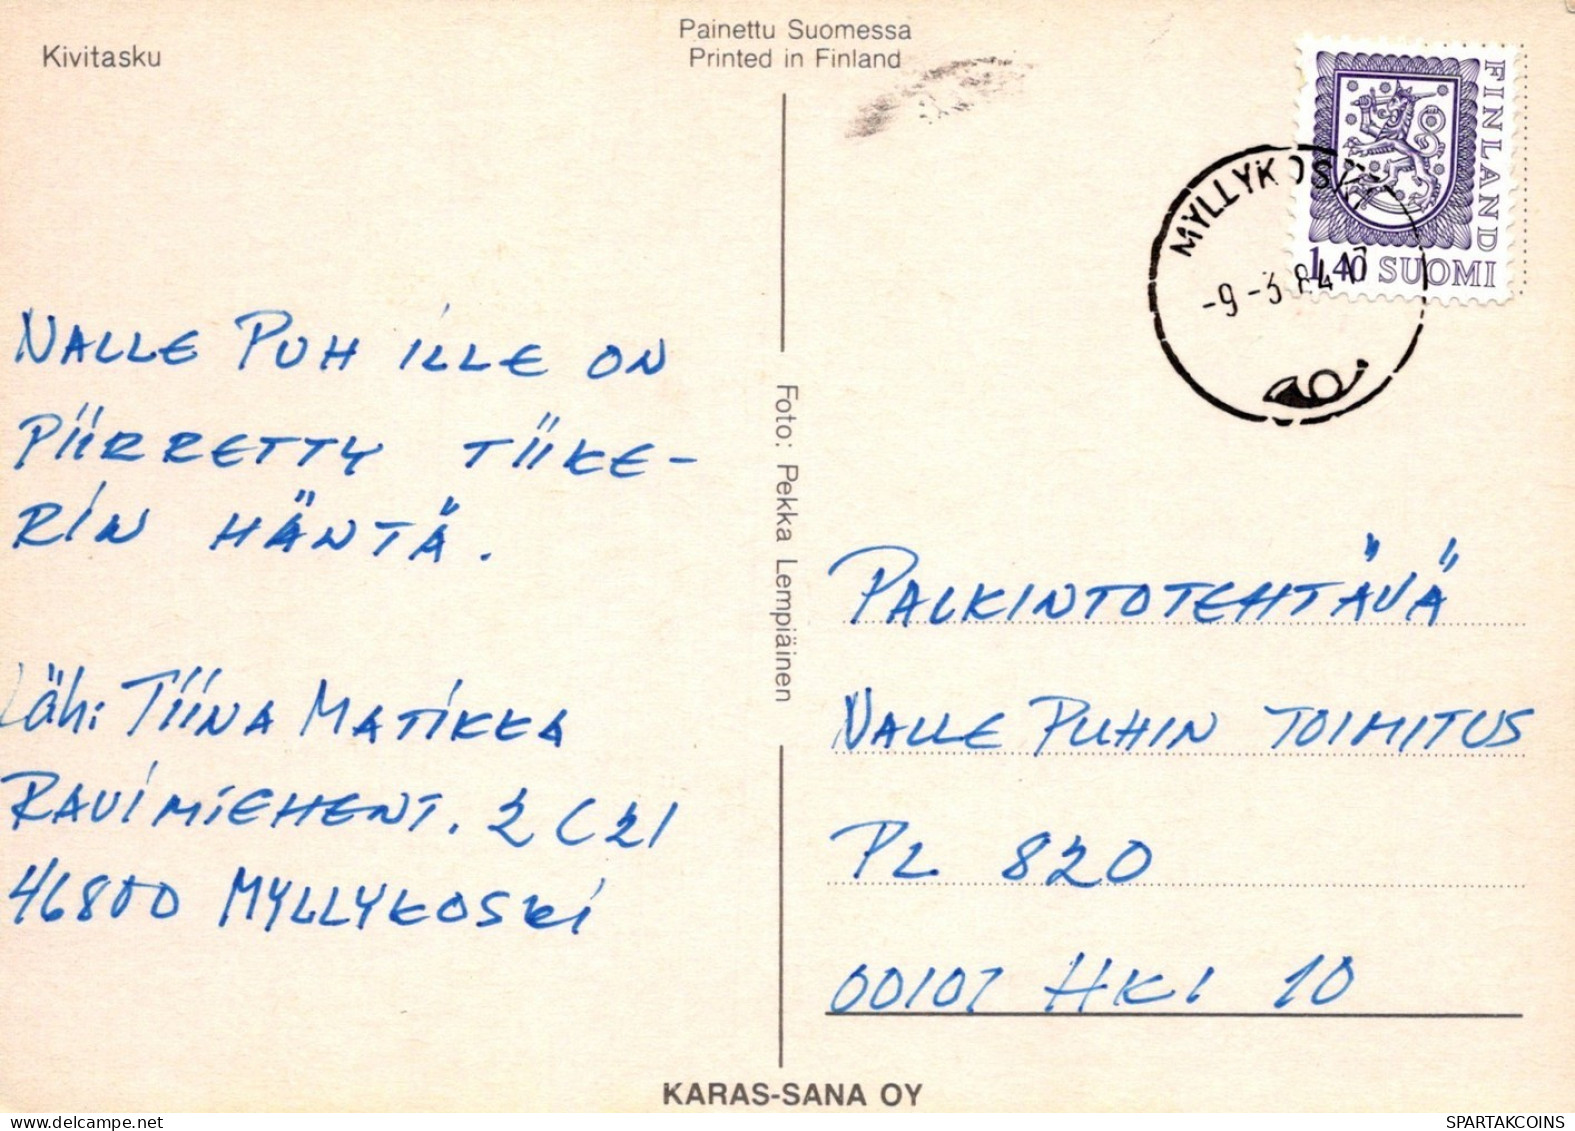 Kivitasku
Painettu Suomessa
Printed in Finland
FINLAND
1,40 SUOMI
MYLLYKOSKI
-9-3.84.17
NALLE PUH ILLE ON
PIIRRETTY TIIKE-
RIN HÄNTÄ.
Läh: TIINA MATIKKA
RAVIMIEHENT. 2 C 21
46800 MYLLYKOSKI
Foto: Pekka Lempiäinen
PALKINTOTEHTÄVÄ
NALLE PUHIN TOIMITUS
PL 820
00101 HKI 10
KARAS-SANA OY
SPARTAKCOINS